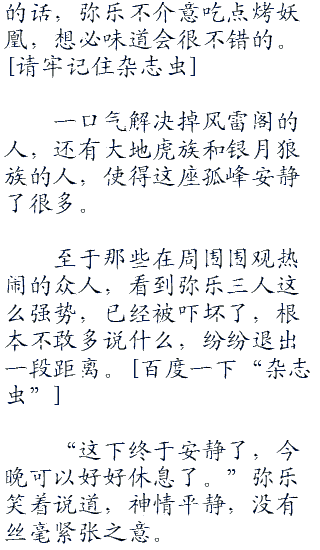 的话，弥乐不介意吃点烤妖
凰，想必味道会很不错的。
[请牢记住杂志虫]
一口气解决掉风雷阁的
人，还有大地虎族和银月狼
族的人，使得这座孤峰安静
了很多。
至于那些在周围围观热
闹的众人，看到弥乐三人这
么强势，已经被吓坏了，根
本不敢多说什么，纷纷退出
一段距离。[百度一下“杂志
虫”]
“这下终于安静了，今
晚可以好好休息了。”弥乐
笑着说道，神情平静，没有
丝毫紧张之意。